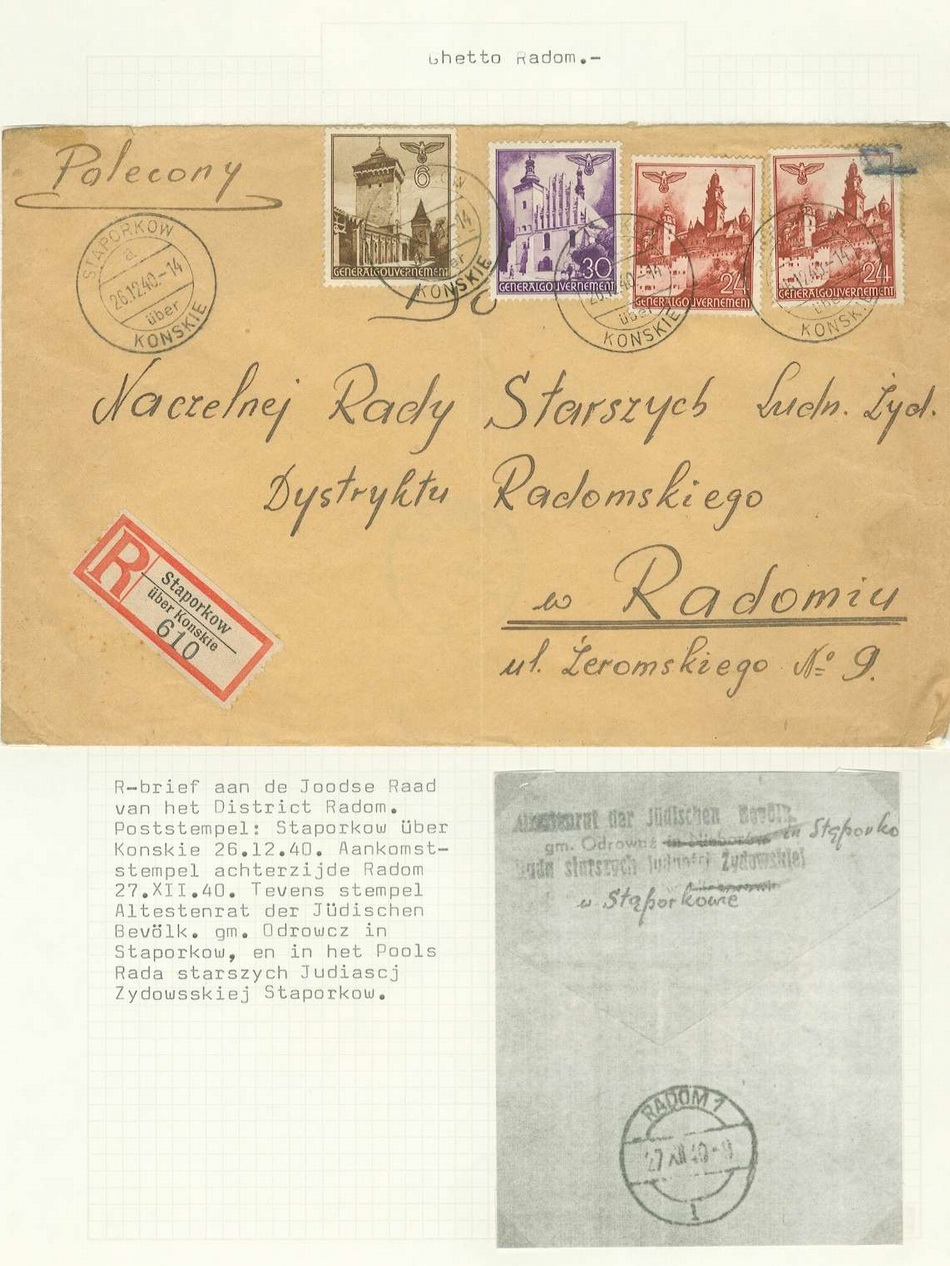 Ghetto Radom.-
Polecony
STAPORKOW
a
26.12.40.-14
über
KONSKIE
6
GENERALGOUVERNEMENT
30
GENERALGOUVERNEMENT
24
GENERALGOUVERNEMENT
24
GENERALGOUVERNEMENT
KONSKIE
26.12.40.-14
über
KONSKIE
KONSKIE
Naczelnej Rady Starszych Ludn. Żyd.
Dystryktu Radomskiego
w Radomiu
ul. Żeromskiego № 9.
R
Staporkow
über Konskie
610
R-brief aan de Joodse Raad
van het District Radom.
Poststempel: Staporkow über
Konskie 26.12.40. Aankomst-
stempel achterzijde Radom
27.XII.40. Tevens stempel
Altestenrat der Jüdischen
Bevölk. gm. Odrowcz in
Staporkow, en in het Pools
Rada starszych Judiascj
Zydowsskiej Staporkow.
Altestenrat der Jüdischen Bevölk.
gm. Odrowąż in Stąporko
Rada starszych ludności Żydowskiej
w Stąporkowie
RADOM 1
27 XII 40-9
1